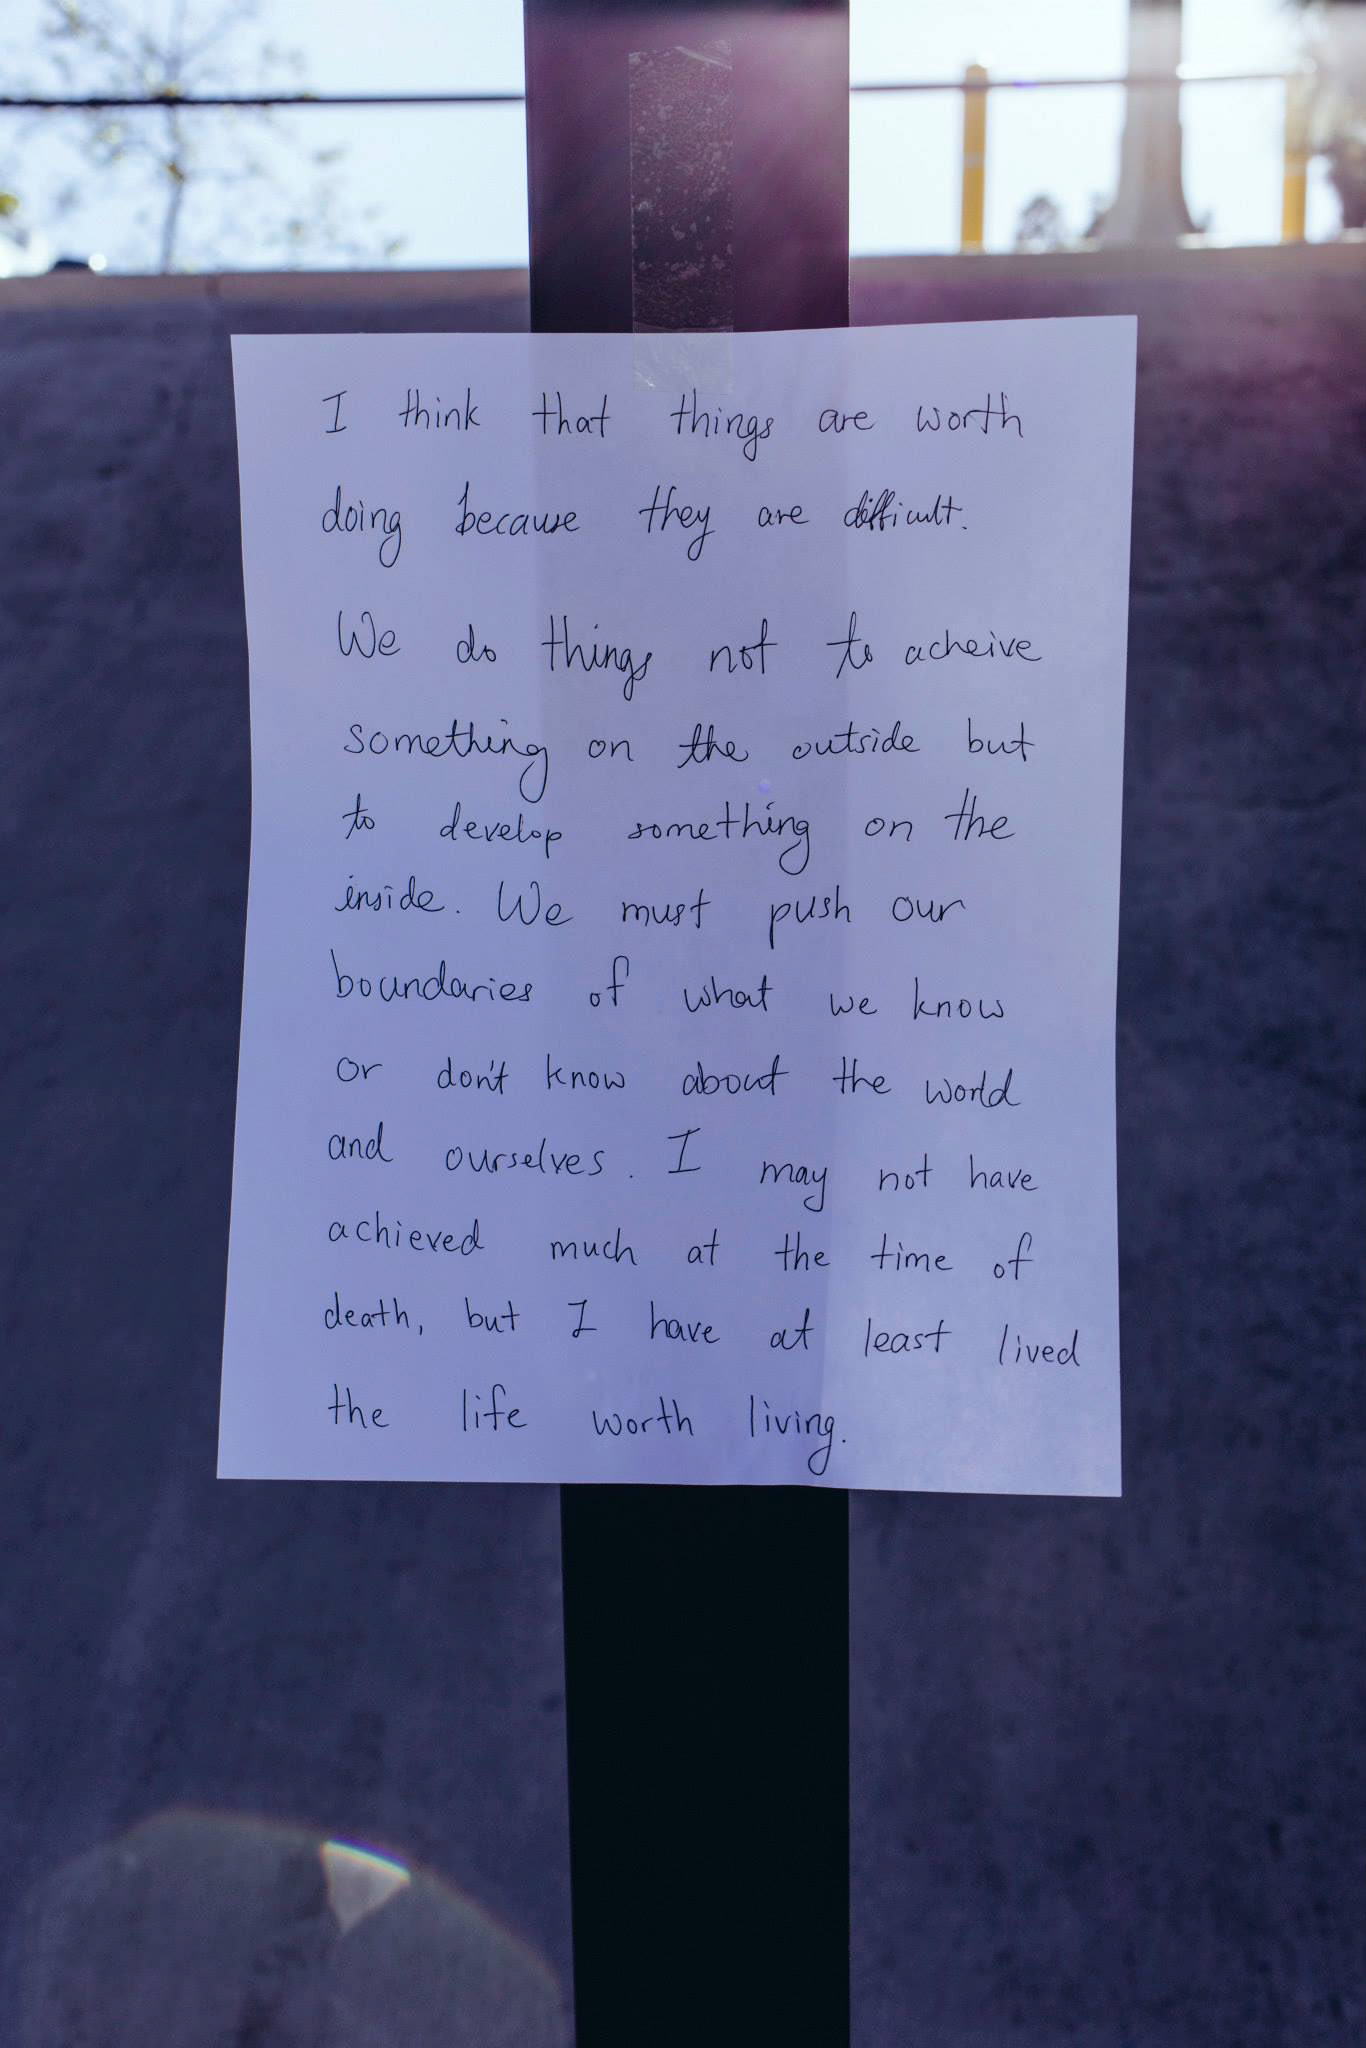 I think that things are worth
doing because they are difficult.
We do things not to acheive
something on the outside but
to develop something on the
inside. We must push our
boundaries of what we know
or don't know about the world
and ourselves. I may not have
achieved much at the time of
death, but I have at least lived
the life worth living.